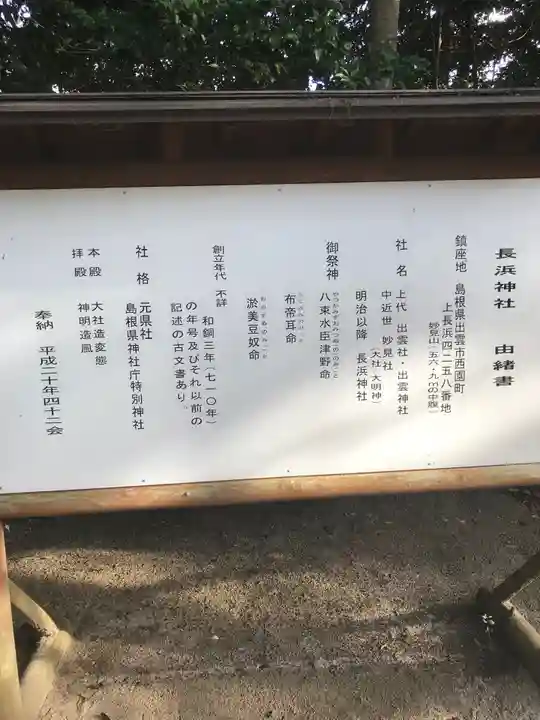 長浜神社 由緒書
鎮座地 島根県出雲市西園町
上長浜四二五八番地
妙見山(五六・九ヨの中腹)
社名 上代 出雲社・出雲神社
(大社 大明神)
中近世 妙見社
明治以降 長浜神社
御祭神 八束水臣津野命
布帝耳命
淤美豆奴命
創立年代 不詳
和銅三年(七一〇年)
の年号及びそれ以前の
記述の古文書あり
社格 元県社
島根県神社庁特別神社
本殿 大社造変態
拝殿 神明造風
奉納 平成二十年四十二会